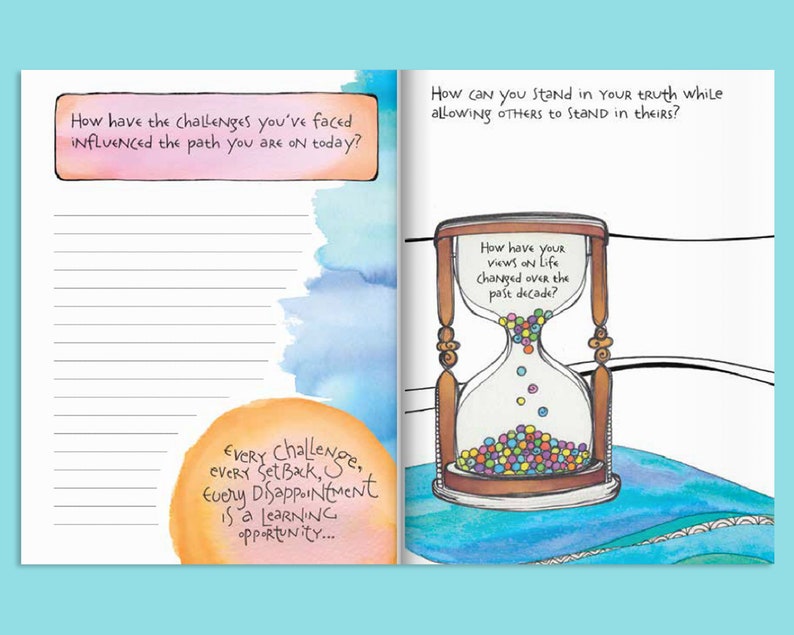 How have the challenges you've faced
influenced the path you are on today?
Every challenge,
every setback,
every disappointment
is a learning
opportunity...
How can you stand in your truth while
allowing others to stand in theirs?
How have your
views on life
changed over the
past decade?